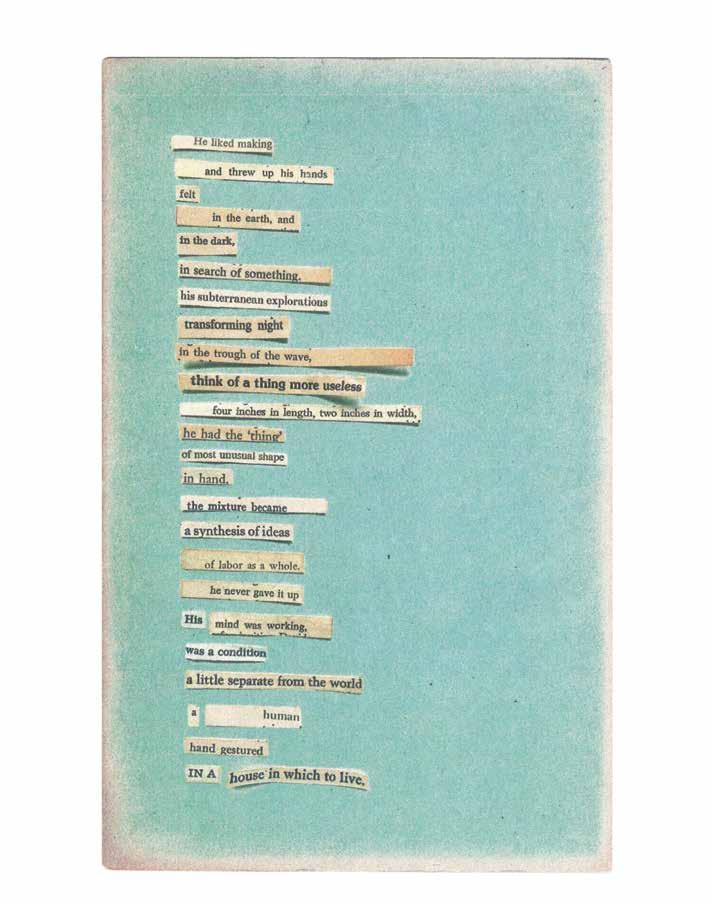 He liked making
and threw up his hands
felt
in the earth, and
in the dark,
in search of something.
his subterranean explorations
transforming night
in the trough of the wave,
think of a thing more useless
four inches in length, two inches in width,
he had the ‘thing’
of most unusual shape
in hand.
the mixture became
a synthesis of ideas
of labor as a whole.
he never gave it up
His mind was working,
was a condition
a little separate from the world
a human
hand gestured
IN A house in which to live.